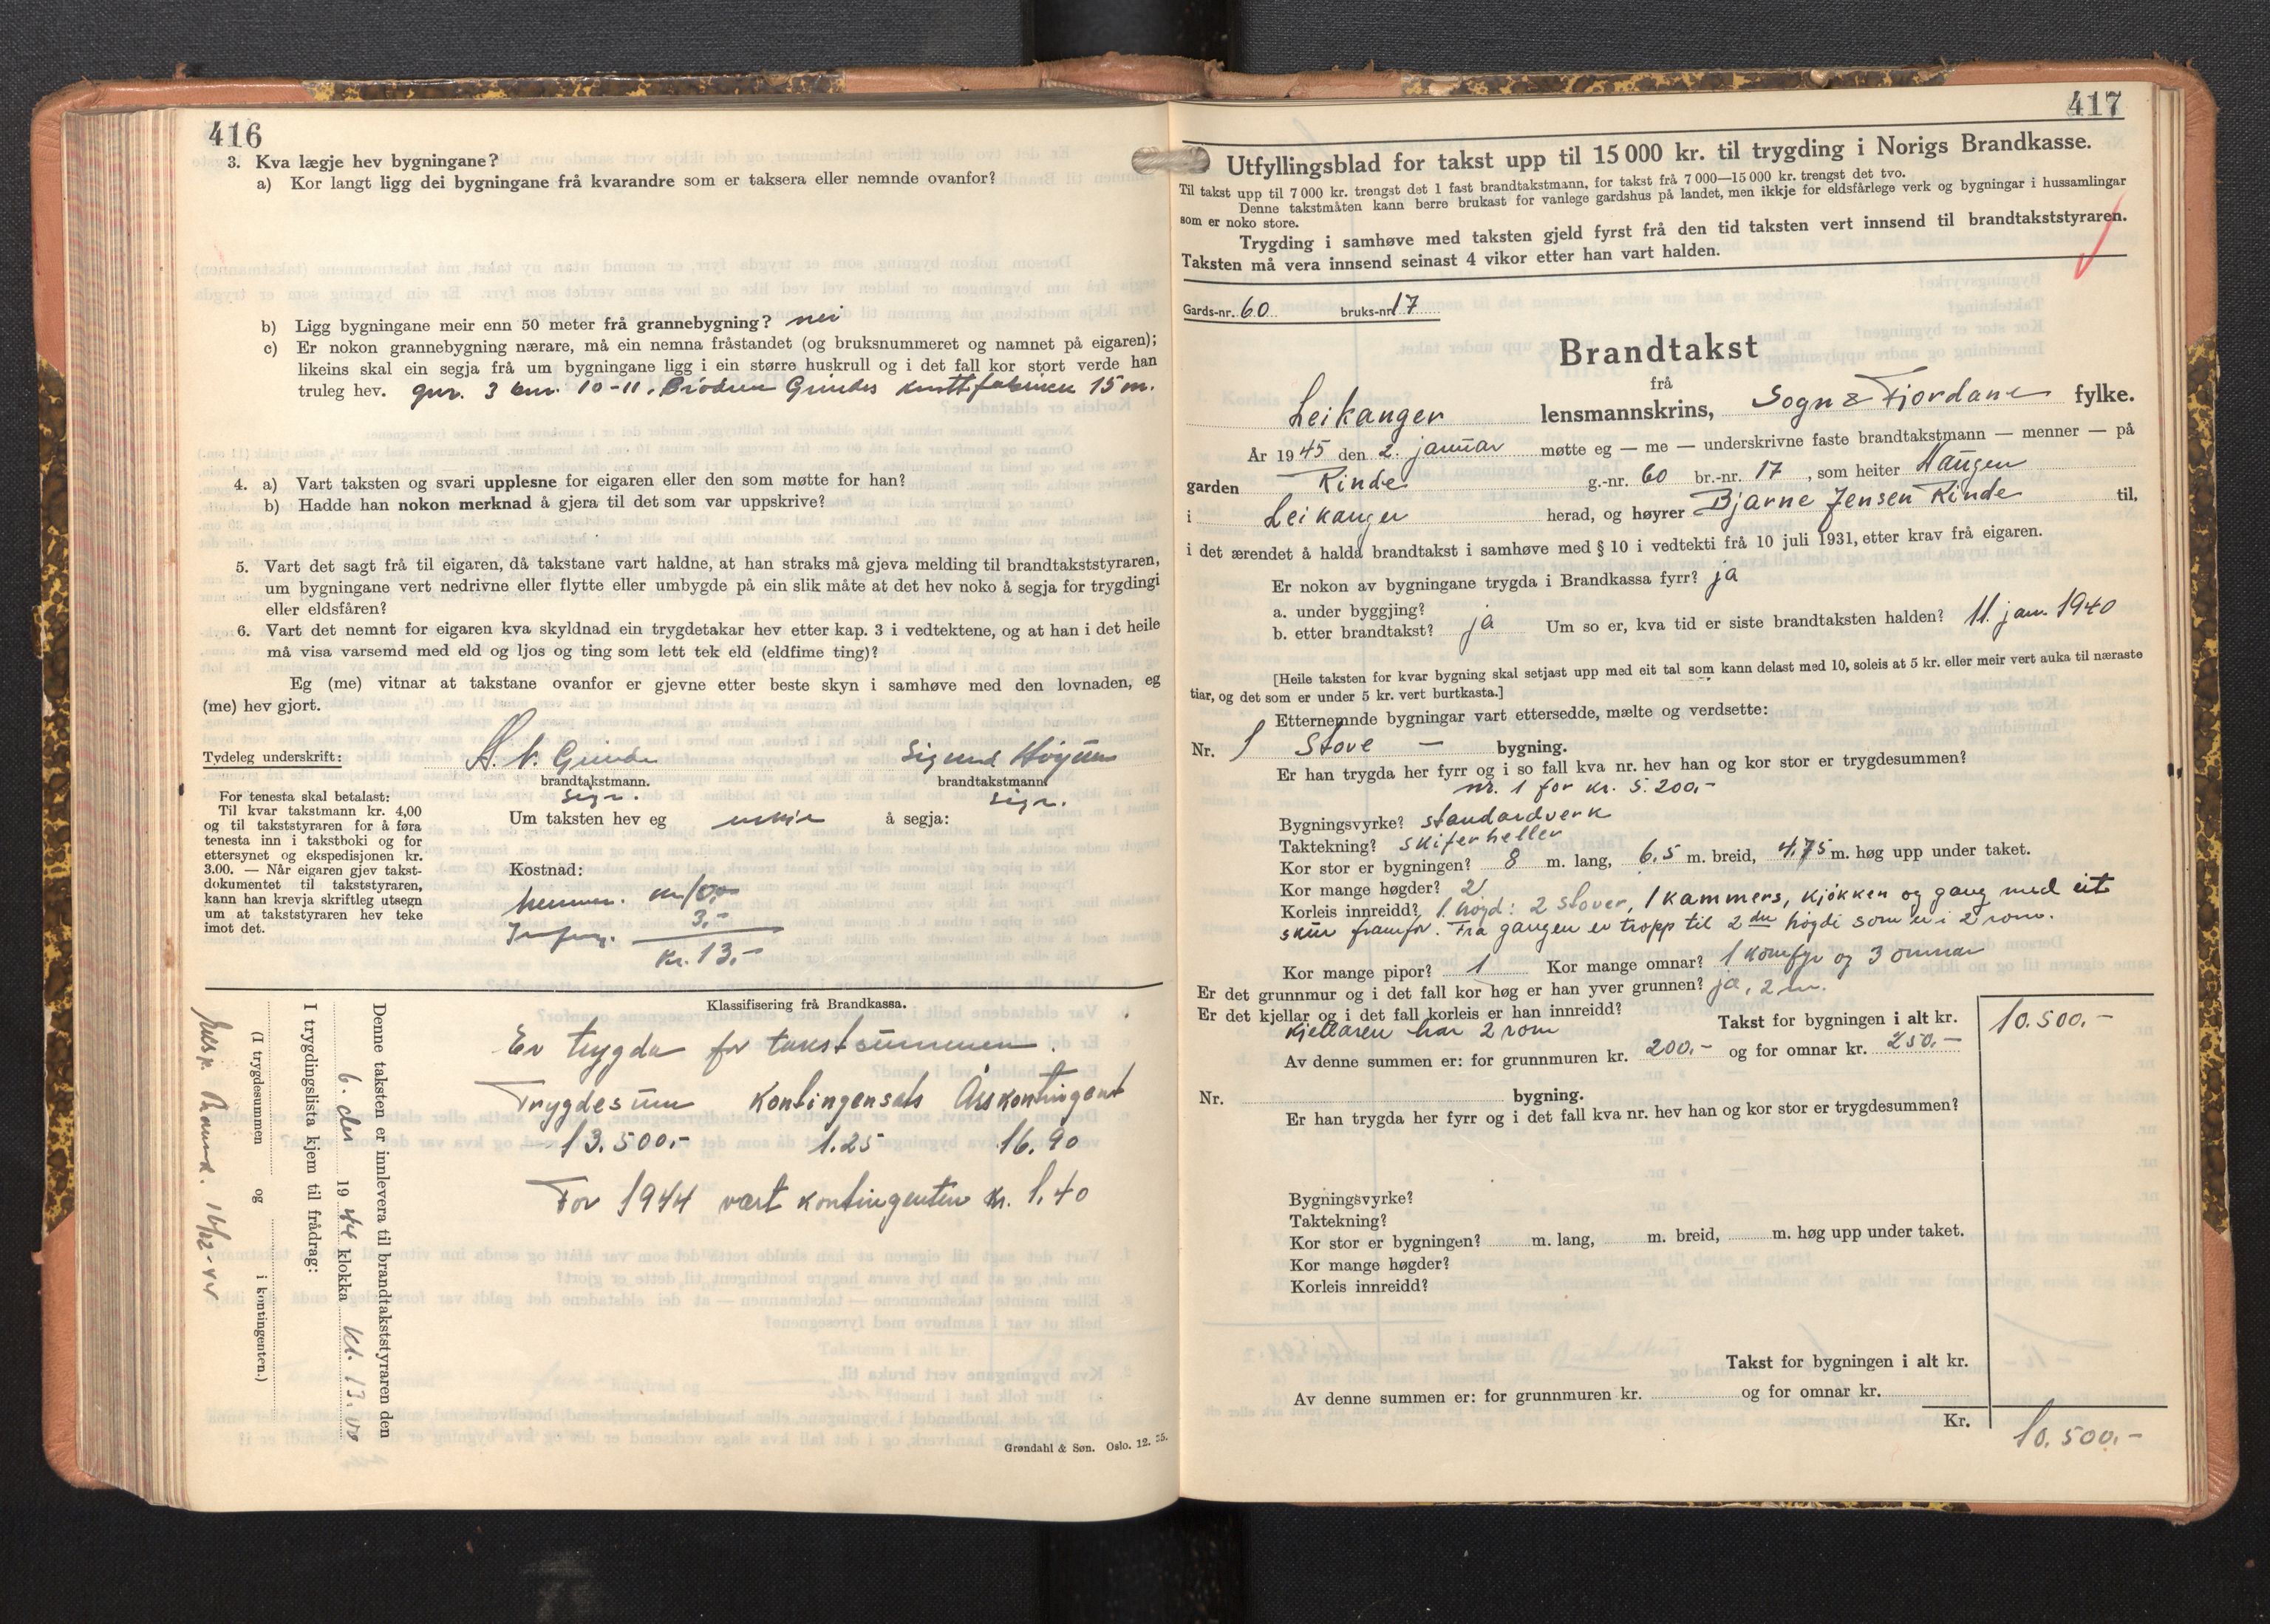 416
3. Kva lægje hev bygningane?
a) Kor langt ligg dei bygningane frå kvarandre som er taksera eller nemnde ovanfor?
b) Ligg bygningane meir enn 50 meter frå grannebygning? nei
c) Er nokon grannebygning nærare, må ein nemna fråstandet (og bruksnummeret og namnet på eigaren);
likeins skal ein segja frå um bygningane ligg i ein større huskrull og i det fall kor stort verde han
truleg hev. gnr. 3 bnr. 10-11. Brødrene Grindes 15 m.
4. a) Vart taksten og svari upplesne for eigaren eller den som møtte for han?
b) Hadde han nokon merknad å gjera til det som var uppskrive?
5. Vart det sagt frå til eigaren, då takstane vart haldne, at han straks må gjeva melding til brandtakststyraren,
um bygningane vert nedrivne eller flytte eller umbygde på ein slik måte at det hev noko å segja for trygdingi
eller eldsfåren?
6. Vart det nemnt for eigaren kva skyldnad ein trygdetakar hev etter kap. 3 i vedtektene, og at han i det heile
må visa varsemd med eld og ljos og ting som lett tek eld (eldfime ting)?
Eg (me) vitnar at takstane ovanfor er gjevne etter beste skyn i samhøve med den lovnaden, eg
(me) hev gjort.
Tydeleg underskrift: Grinde Sigmund
brandtakstmann. brandtakstmann
sign. sign.
For tenesta skal betalast:
Til kvar takstmann kr. 4,00
og til takststyraren for å føra
tenesta inn i takstboki og for
ettersynet og ekspedisjonen kr.
3.00. — Når eigaren gjev takst-
dokumentet til takststyraren,
kann han krevja skriftleg utsegn
um at takststyraren hev teke
imot det.
Um taksten hev eg å segja:
Kostnad:
3.-
kr. 13.-
Klassifisering frå Brandkassa.
Er trygda for takstsummen.
Trygdesum Kontingensats Årskontingent
13.500.- 1.25 16.90
For 1944 vert kontingenten kr. 1.40
Denne taksten er innlevera til brandtakststyraren den
6. des 1944 klokka kl. 13.00
I trygdingslista kjem til frådrag:
(I trygdesummen og i kontingenten.)
16/12-44
Grøndahl & Søn. Oslo. 12. 35.
417
Utfyllingsblad for takst upp til 15 000 kr. til trygding i Norigs Brandkasse.
Til takst upp til 7 000 kr. trengst det 1 fast brandtakstmann, for takst frå 7 000—15 000 kr. trengst det tvo.
Denne takstmåten kann berre brukast for vanlege gardshus på landet, men ikkje for eldsfårlege verk og bygningar i hussamlingar
som er noko store.
Trygding i samhøve med taksten gjeld fyrst frå den tid taksten vert innsend til brandtakststyraren.
Taksten må vera innsend seinast 4 vikor etter han vart halden.
Gards-nr. 60 bruks-nr. 17
Brandtakst
frå
Leikanger lensmannskrins, Sogn & Fjordane fylke.
År 1945 den 2. januar møtte eg — me — underskrivne faste brandtakstmann — menner — på
garden Rinde g.-nr. 60 br.-nr. 17, som heiter Haugen
i Leikanger herad, og høyrer Bjarne Jensen Rinde til,
i det ærendet å halda brandtakst i samhøve med § 10 i vedtekti frå 10 juli 1931, etter krav frå eigaren.
Er nokon av bygningane trygda i Brandkassa fyrr? ja
a. under byggjing?
b. etter brandtakst? ja Um so er, kva tid er siste brandtaksten halden? 11. jan. 1940
[Heile taksten for kvar bygning skal setjast upp med eit tal som kann delast med 10, soleis at 5 kr. eller meir vert auka til næraste
tiar, og det som er under 5 kr. vert burtkasta.]
Etternemnde bygningar vart ettersedde, mælte og verdsette:
Nr. 1 Stove — bygning.
Er han trygda her fyrr og i so fall kva nr. hev han og kor stor er trygdesummen?
nr. 1 for kr. 5.200.-
Bygningsvyrke? standardverk
Taktekning? skiferheller
Kor stor er bygningen? 8 m. lang, 6.5 m. breid, 4.75 m. høg upp under taket.
Kor mange høgder? 2
Korleis innreidd? 1. høgd: 2 stover, 1 kammers, kjøkken og gang med eit
skur framfor. Frå gangen er tropp til 2 dre høgdi som er i 2 rom.
Kor mange pipor? 1 Kor mange omnar? 1 komfyr og 3 omnar
Er det grunnmur og i det fall kor høg er han yver grunnen? ja, 2 m.
Er det kjellar og i det fall korleis er han innreidd?
Kjellaren har 2 rom
Takst for bygningen i alt kr. 10.500.-
Av denne summen er: for grunnmuren kr. 200.- og for omnar kr. 250.-
Nr. bygning.
Er han trygda her fyrr og i det fall kva nr. hev han og kor stor er trygdesummen?
Bygningsvyrke?
Taktekning?
Kor stor er bygningen? m. lang, m. breid, m. høg upp under taket.
Kor mange høgder?
Korleis innreidd?
Takst for bygningen i alt kr.
Av denne summen er: for grunnmuren kr. og for omnar kr.
Kr. 10.500.-